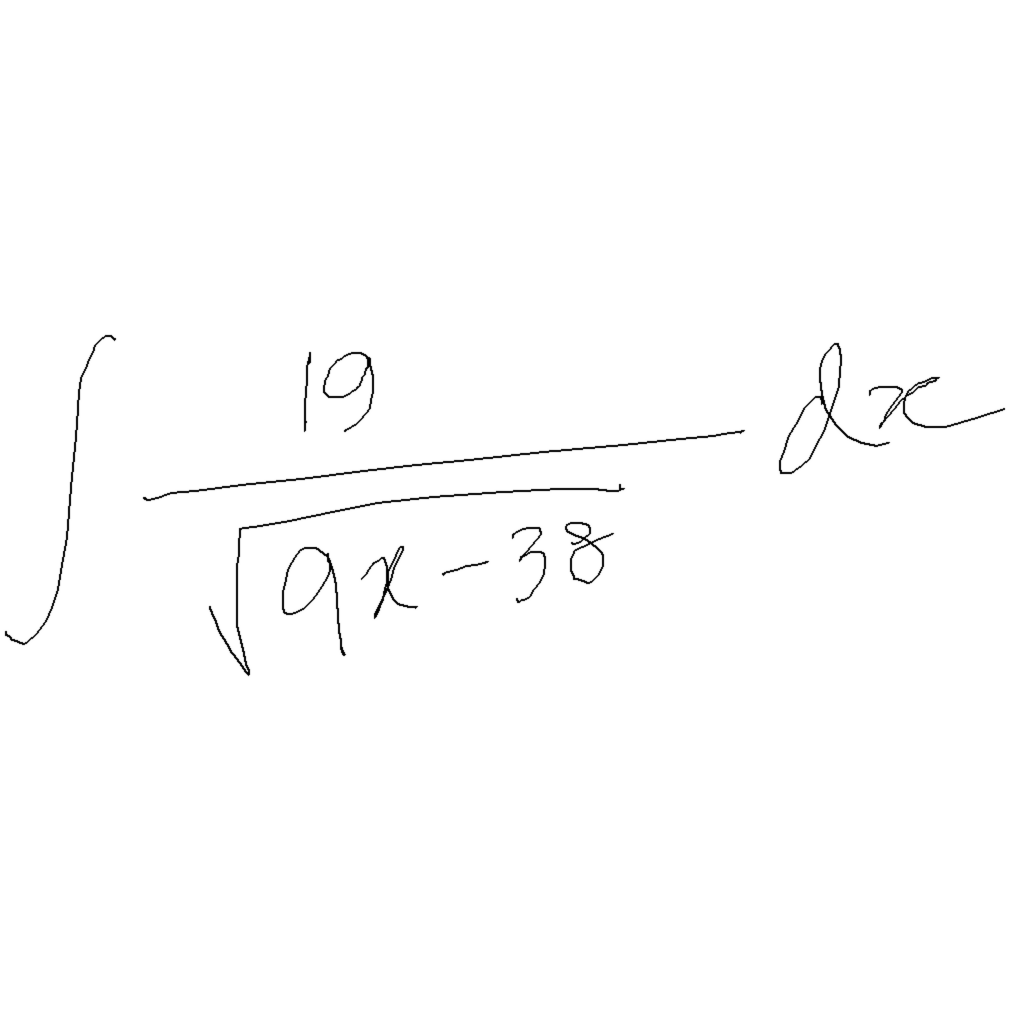 \int \frac{19}{\sqrt{9x-38}} dx